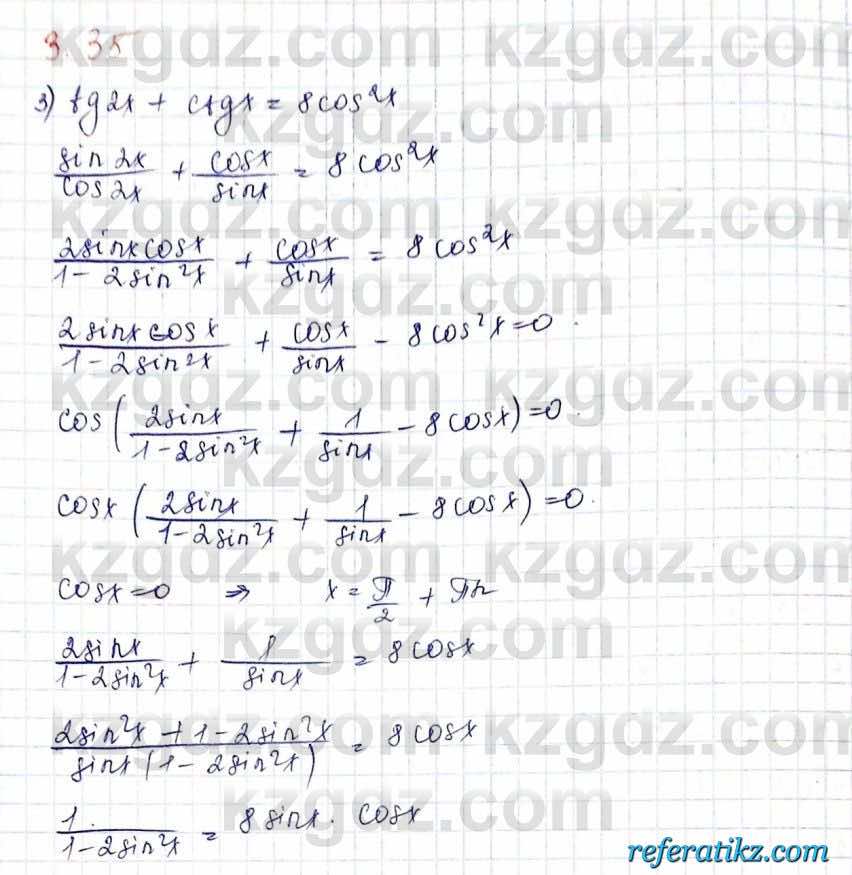 3.35
3) tg2x + ctgx = 8cos²x
sin 2x / cos 2x + cosx / sinx = 8 cos²x
2sinxcosx / 1 - 2sin²x + cosx / sinx = 8 cos²x
2sinxcosx / 1 - 2sin²x + cosx / sinx - 8cos²x = 0.
cos ( 2sinx / 1 - 2sin²x + 1 / sinx - 8cosx ) = 0.
cosx ( 2sinx / 1 - 2sin²x + 1 / sinx - 8cosx ) = 0.
cosx = 0 ⇒ x = π/2 + πn
2sinx / 1 - 2sin²x + 1 / sinx = 8cosx
2sin²x + 1 - 2sin²x / sinx (1 - 2sin²x) = 8cosx
1 / 1 - 2sin²x = 8sinx · cosx
kzgdz.com
referatikz.com